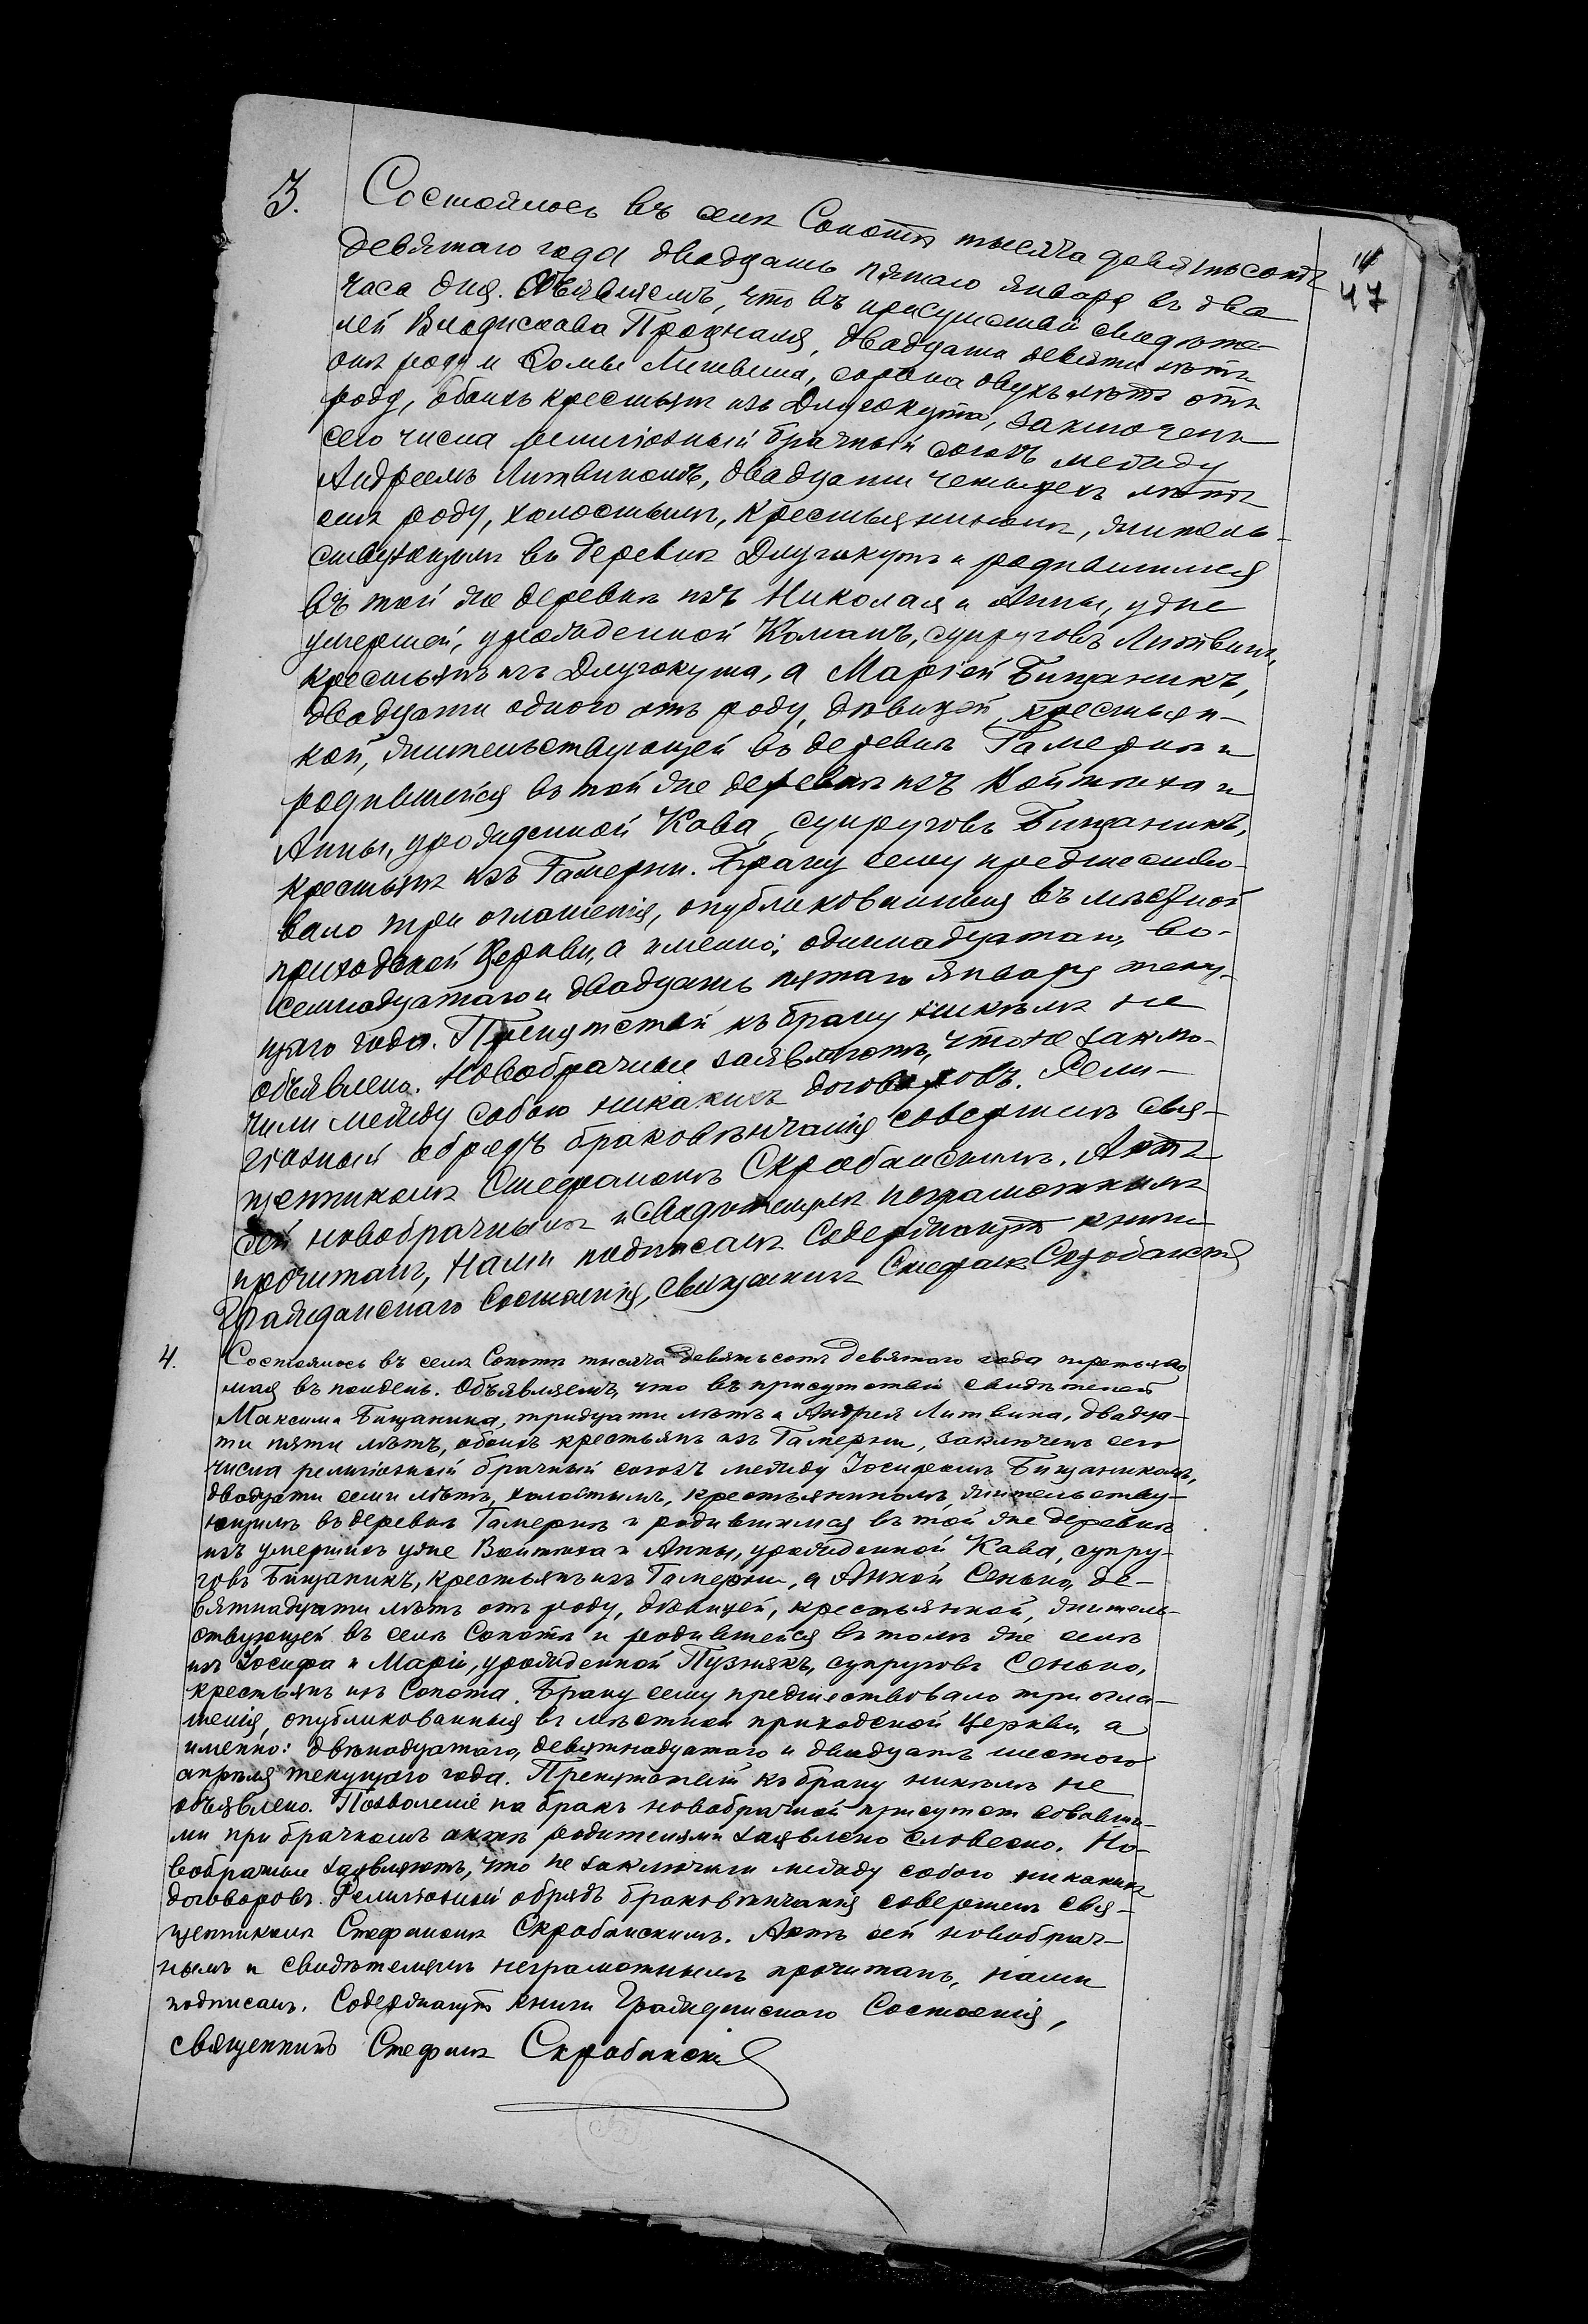 3. Состоялось въ селѣ Сопотѣ тысяча девятьсотъ
девятаго года двадцать пятаго января въ два
часа дня. Объявляемъ, что въ присутствіи свидѣте-
лей Владислава Прокопа, двадцати девяти лѣтъ
отъ роду и Ѳомы Литвина, сорока двухъ лѣтъ отъ
роду, обоихъ крестьянъ изъ Длугокута, заключенъ
сего числа религіозный брачный союзъ между
Андреемъ Литвиномъ, двадцати четырехъ лѣтъ
отъ роду, холостымъ, крестьяниномъ, житель-
ствующимъ въ деревнѣ Длугокутъ и родившимся
въ той же деревнѣ изъ Николая и Анны, уже
умершей, урожденной Команъ, супруговъ Литвинъ,
крестьянъ изъ Длугокута, а Маріей Бищаникъ,
двадцати одного отъ роду, дѣвицей, крестьян-
кой, жительствующей въ деревнѣ Гамернѣ и
родившейся въ той же деревнѣ изъ Войтѣха и
Анны, урожденной Кава, супруговъ Бищаникъ,
крестьянъ изъ Гамерни. Браку сему предшество-
вало три оглашенія, опубликованныя въ мѣстной
приходской Церкви, а именно: одиннадцатаго, во-
семнадцатаго и двадцать пятаго января теку-
щаго года. Препятствій къ браку никѣмъ не
объявлено. Новобрачные заявляютъ, что не заклю-
чили между собою никакихъ договоровъ. Рели-
гіозный обрядъ браковѣнчанія совершенъ свя-
щенникомъ Стефаномъ Скробанскимъ. Актъ
сей новобрачнымъ и свидѣтелямъ неграмотнымъ
прочитанъ, Нами подписанъ. Содержащій книги
Гражданскаго Состоянія, священникъ Стефанъ Скробанскій
47
4. Состоялось въ селѣ Сопотѣ тысяча девятьсотъ девятаго года третьяго
мая въ полдень. Объявляемъ, что въ присутствіи свидѣтелей
Максима Бищаника, тридцати лѣтъ и Андрея Литвина, двадца-
ти пяти лѣтъ, обоихъ крестьянъ изъ Гамерни, заключенъ сего
числа религіозный брачный союзъ между Іосифомъ Бищаникомъ,
двадцати семи лѣтъ, холостымъ, крестьяниномъ, жительству-
ющимъ въ деревнѣ Гамернѣ и родившимся въ той же деревнѣ
изъ умершихъ уже Войтѣха и Анны, урожденной Кава, супру-
говъ Бищаникъ, крестьянъ изъ Гамерни, а Анной Сенько, де-
вятнадцати лѣтъ отъ роду, дѣвицей, крестьянкой, житель-
ствующей въ селѣ Сопотѣ и родившейся въ томъ же селѣ
изъ Іосифа и Маріи, урожденной Пузнякъ, супруговъ Сенько,
крестьянъ изъ Сопота. Браку сему предшествовало три огла-
шенія, опубликованныя въ мѣстной приходской Церкви, а
именно: двѣнадцатаго, девятнадцатаго и двадцать шестого
апрѣля текущаго года. Препятствій къ браку никѣмъ не
объявлено. Позволеніе на бракъ новобрачной присутствовавши-
ми при брачномъ актѣ родителями заявлено словесно. Но-
вобрачные заявляютъ, что не заключили между собою никакихъ
договоровъ. Религіозный обрядъ браковѣнчанія совершенъ свя-
щенникомъ Стефаномъ Скробанскимъ. Актъ сей новобрач-
нымъ и свидѣтелямъ неграмотнымъ прочитанъ, нами
подписанъ. Содержащій книги Гражданскаго Состоянія,
священникъ Стефанъ Скробанскій